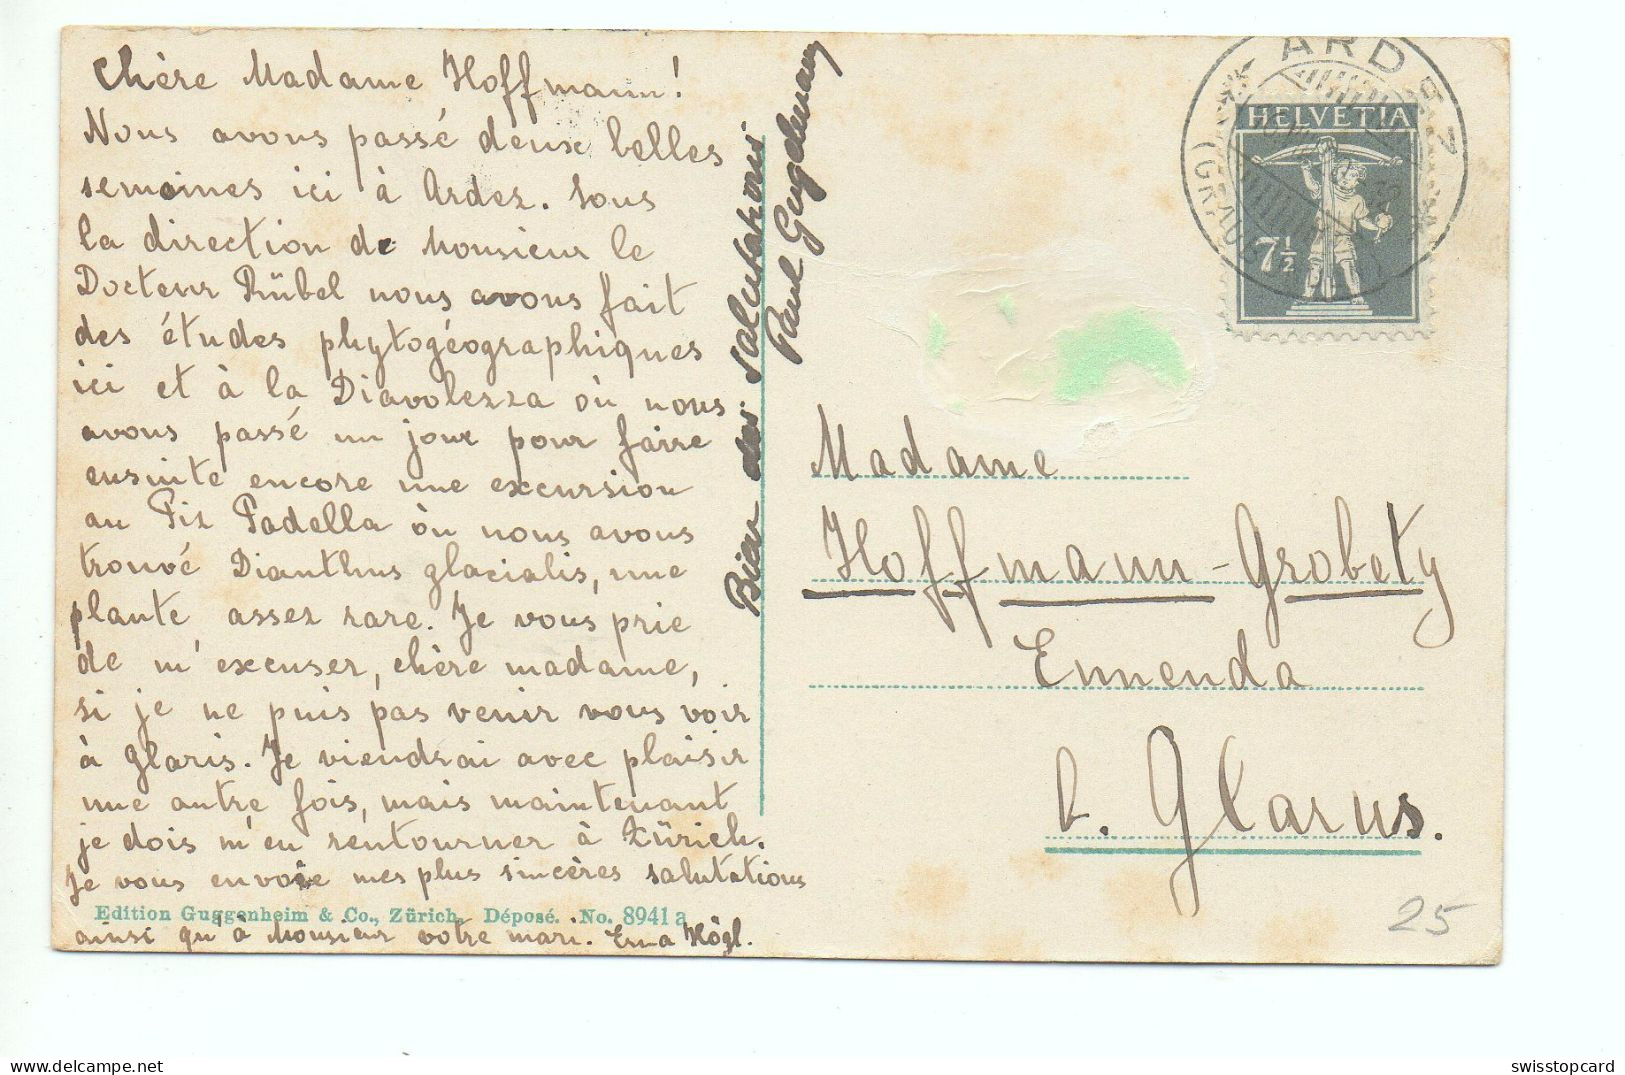 Chère Madame Hoffmann!
Nous avons passé deux belles
semaines ici à Ardez. Sous
la direction de Monsieur le
Docteur Rübel nous avons fait
des études phytogéographiques
ici et à la Diavolezza où nous
avons passé un jour pour faire
ensuite encore une excursion
au Piz Padella òu nous avons
trouvé Dianthus glacialis, une
plante assez rare. Je vous prie
de m'excuser, chère madame,
si je ne puis pas venir vous voir
à Glaris. Je viendrai avec plaisir
une autre fois, mais maintenant
je dois m'en rentourner à Zürich.
Je vous envoie mes plus sincères salutations
Edition Guggenheim & Co., Zürich. Déposé. No. 8941 a
ainsi qu'à Monsieur votre mari. Erna Högl.
Bien des salutations
Paul Gugelmann
ARDEZ
HELVETIA
7½
Madame
Hoffmann-Grobety
Ennenda
b. Glarus.
25
swisstopcard